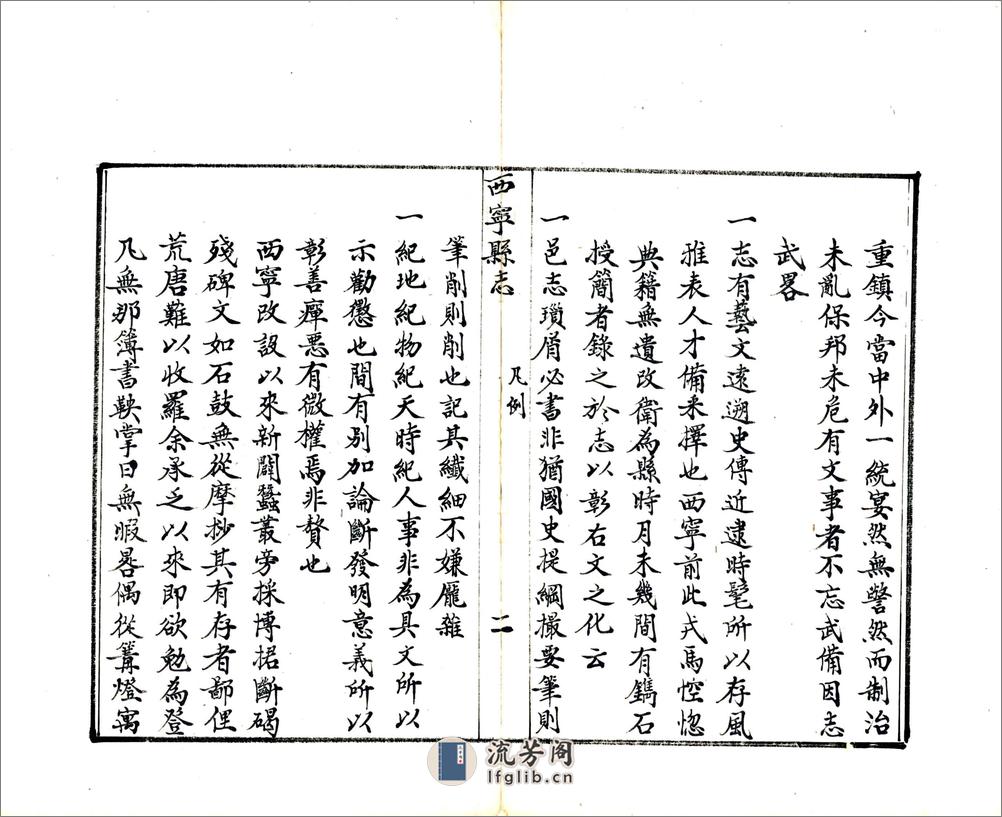 重鎮今當中外一統宴然無警然而制治
未亂保邦未危有文事者不忘武備因志
武畧
一志有藝文遠遡史傳近逮時髦所以存風
雅表人才備采擇也西寧前此戎馬悾惚
典籍無遺改衛為縣時月未幾間有鐫石
授簡者錄之於志以彰右文之化云
一邑志瑣屑必書非猶國史提綱撮要筆則
西寧縣志 凡例 二
筆削則削也記其纖細不嫌龐雜
一紀地紀物紀天時紀人事非為具文所以
示勸懲也間有別加論斷發明意義所以
彰善癉悪有微權焉非贅也
西寧改設以來新闢蠶叢旁採博捃斷碣
殘碑文如石鼓無從摩抄其有存者鄙俚
荒唐難以收羅余承乏以來即欲勉為登
凡無那簿書鞅掌日無暇晷偶從篝燈寓
流芳阁
lfglib.cn